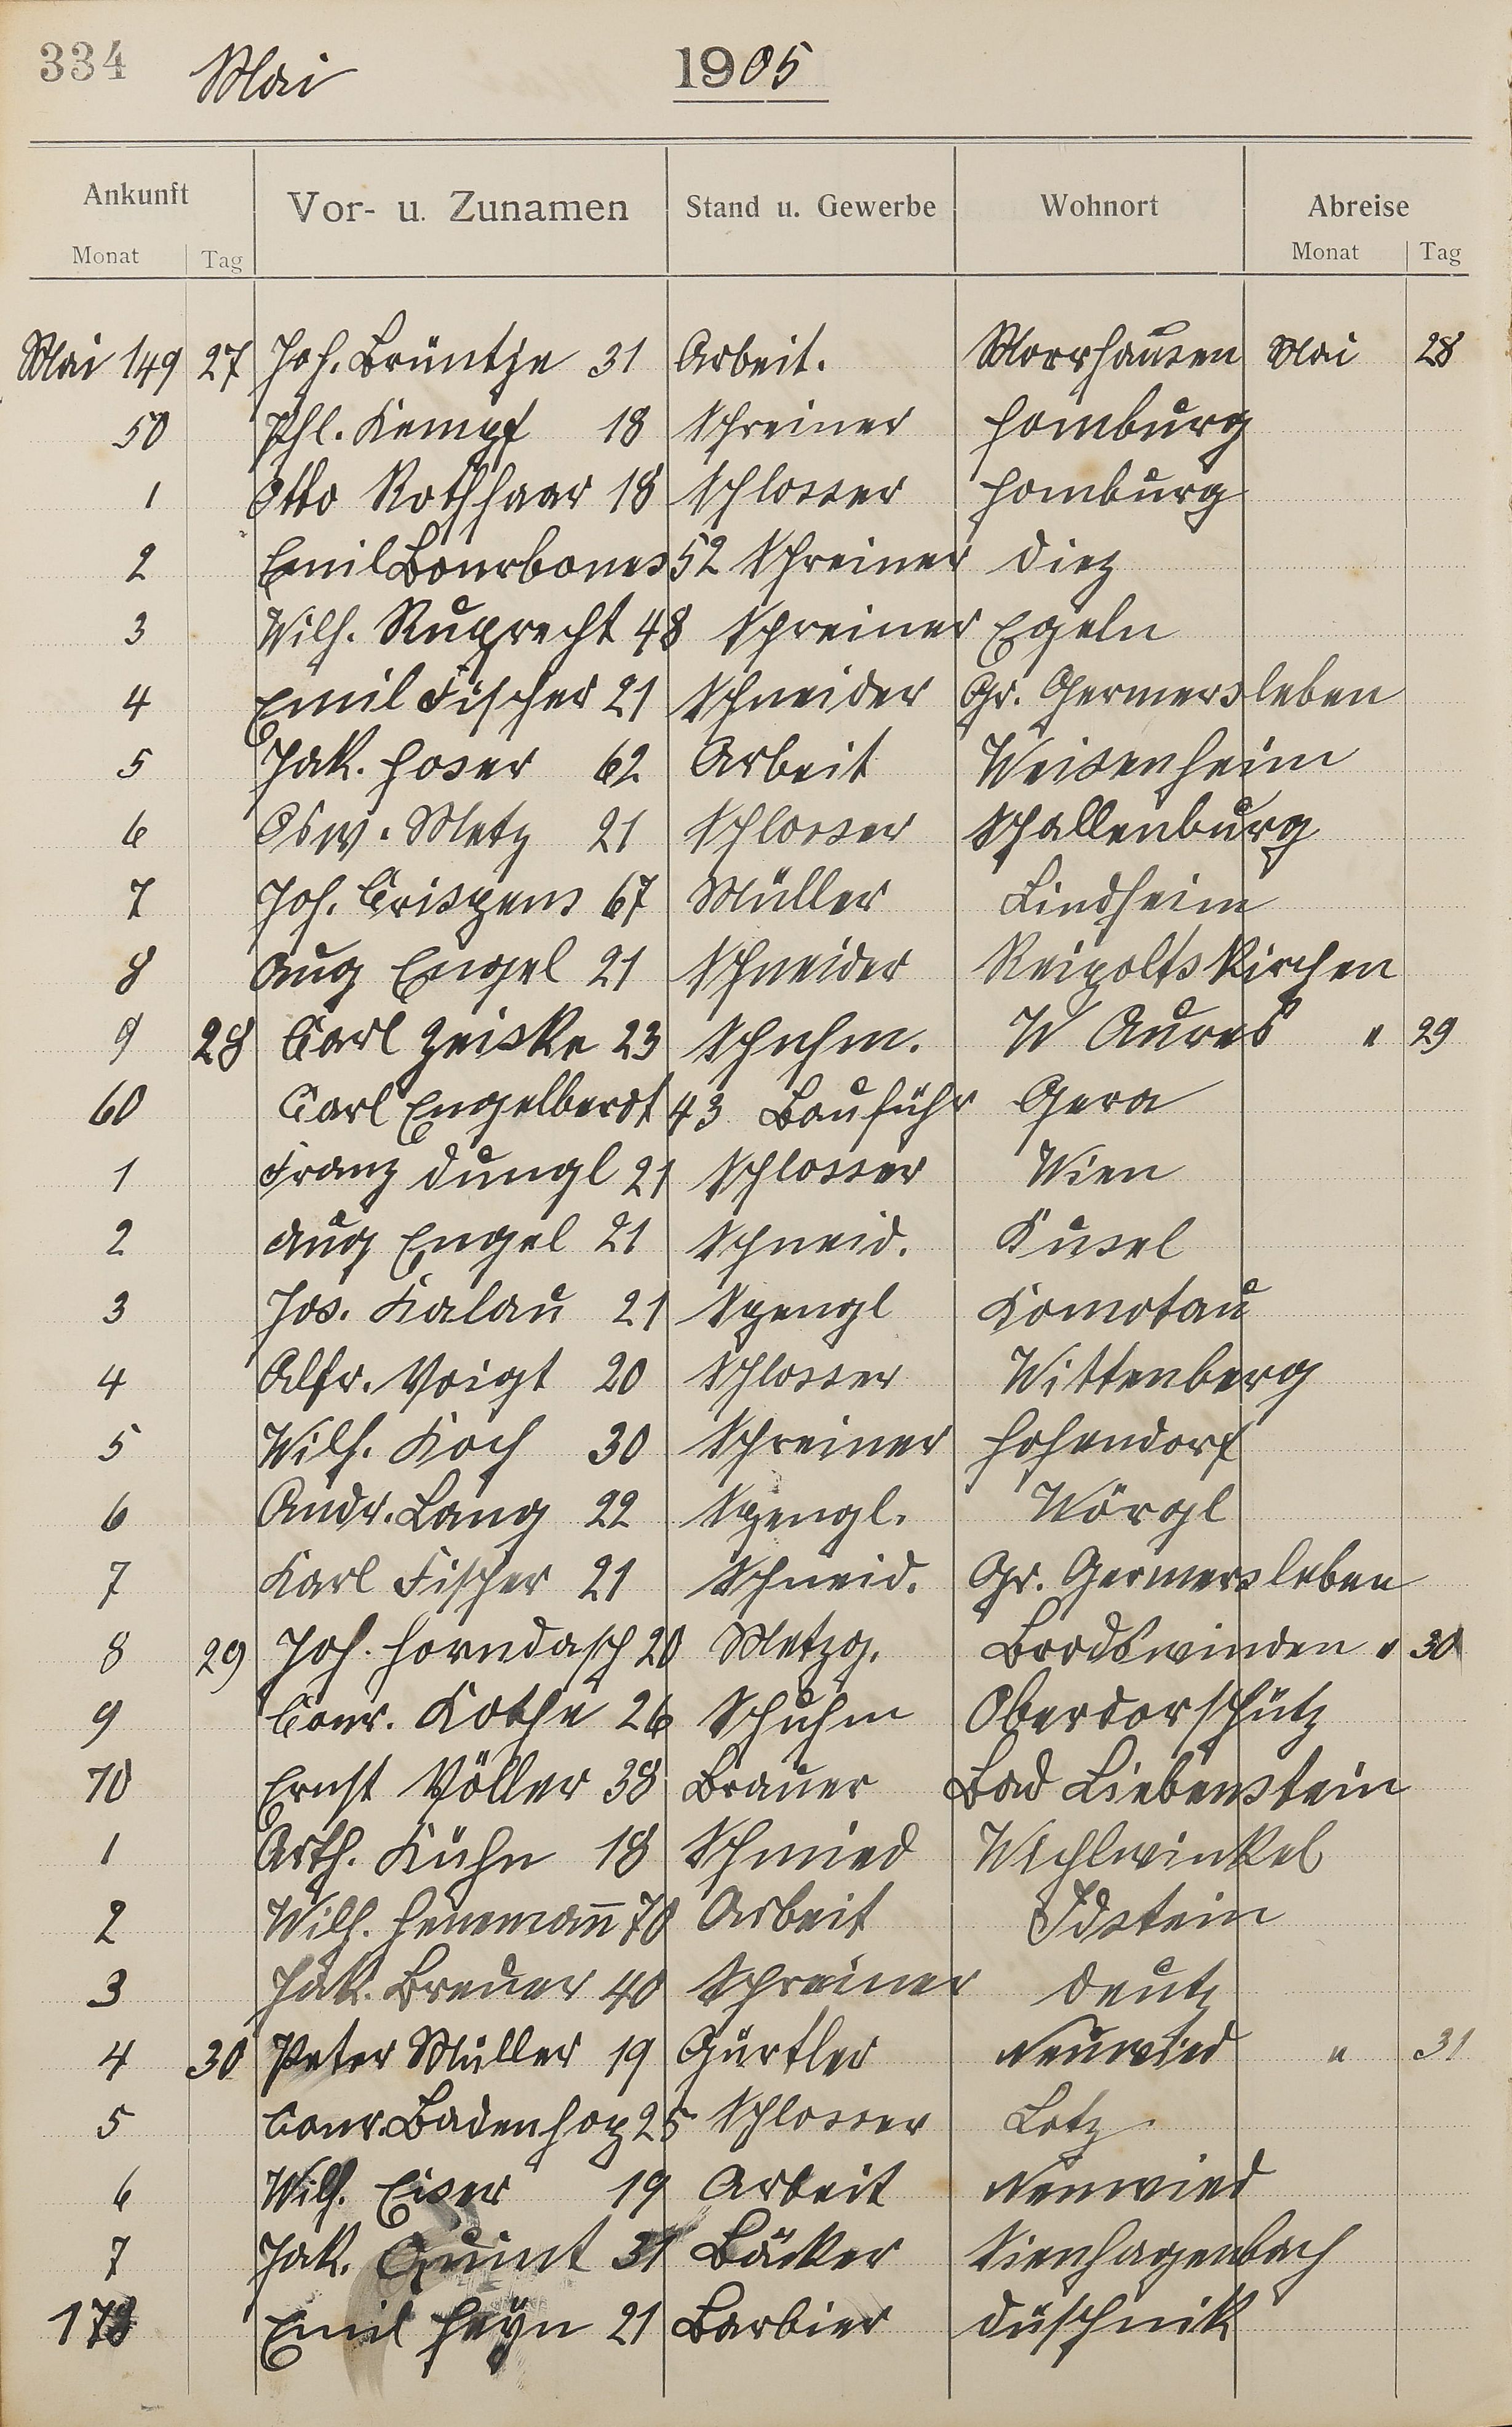 334 Mai 1905
Ankunft Vor- u. Zunamen Stand u. Gewerbe Wohnort Abreise
Monat Tag Monat Tag
Mai 149 27 Joh. Brüntje 31 Arbeit. Morrhausen Mai 28
50 Phl. Kempf 18 Schreiner Homburg
1 Otto Rothhaar 18 Schlosser Homburg
2 Emil Bourbones 52 Schreiner Diez
3 Wilh. Ruprecht 48 Schreiner Egeln
4 Emil Fischer 21 Schneider Gr. Germersleben
5 Jak. Hoser 62 Arbeit Weisenheim
6 Osw. Metz 21 Schlosser Schallenburg
7 Joh. Crispens 67 Müller Lindheim
8 Aug Engel 21 Schneider Reipoltskirchen
9 28 Carl Zeiske 23 Schuhm. W Aures " 29
60 Carl Engelberdt 43 Bauführ Gera
1 Franz Dungl 21 Schlosser Wien
2 Aug Engel 21 Schneid. Kusel
3 Jos. Kalau 21 Spengl Komotau
4 Alfr. Voigt 20 Schlosser Wittenberg
5 Wilh. Koch 30 Schreiner Hohendorf
6 Andr. Lang 22 Spengl. Wörgl
7 Karl Fischer 21 Schneid. Gr. Germersleben
8 29 Joh. Horndasch 20 Metzg. Brodswinden " 30
9 Conr. Kothe 26 Schuhm Oberdorschütz
70 Ernst Völler 38 Brauer Bad Liebenstein
1 Arth. Kühn 18 Schmied
2 Wilh. 70 Arbeit Idstein
3 Jak. Breuer 40 Schreiner Deutz
4 30 Peter Müller 19 Gürtler Neuwied " 31
5 Conr. Badenhop 25 Schlosser Letz
6 Wilh. Eiser 19 Arbeit Neuwied
7 Jak. Quint 31 Bäcker Sienhagenbach
178 Emil Heyn 21 Barbier Duschnik